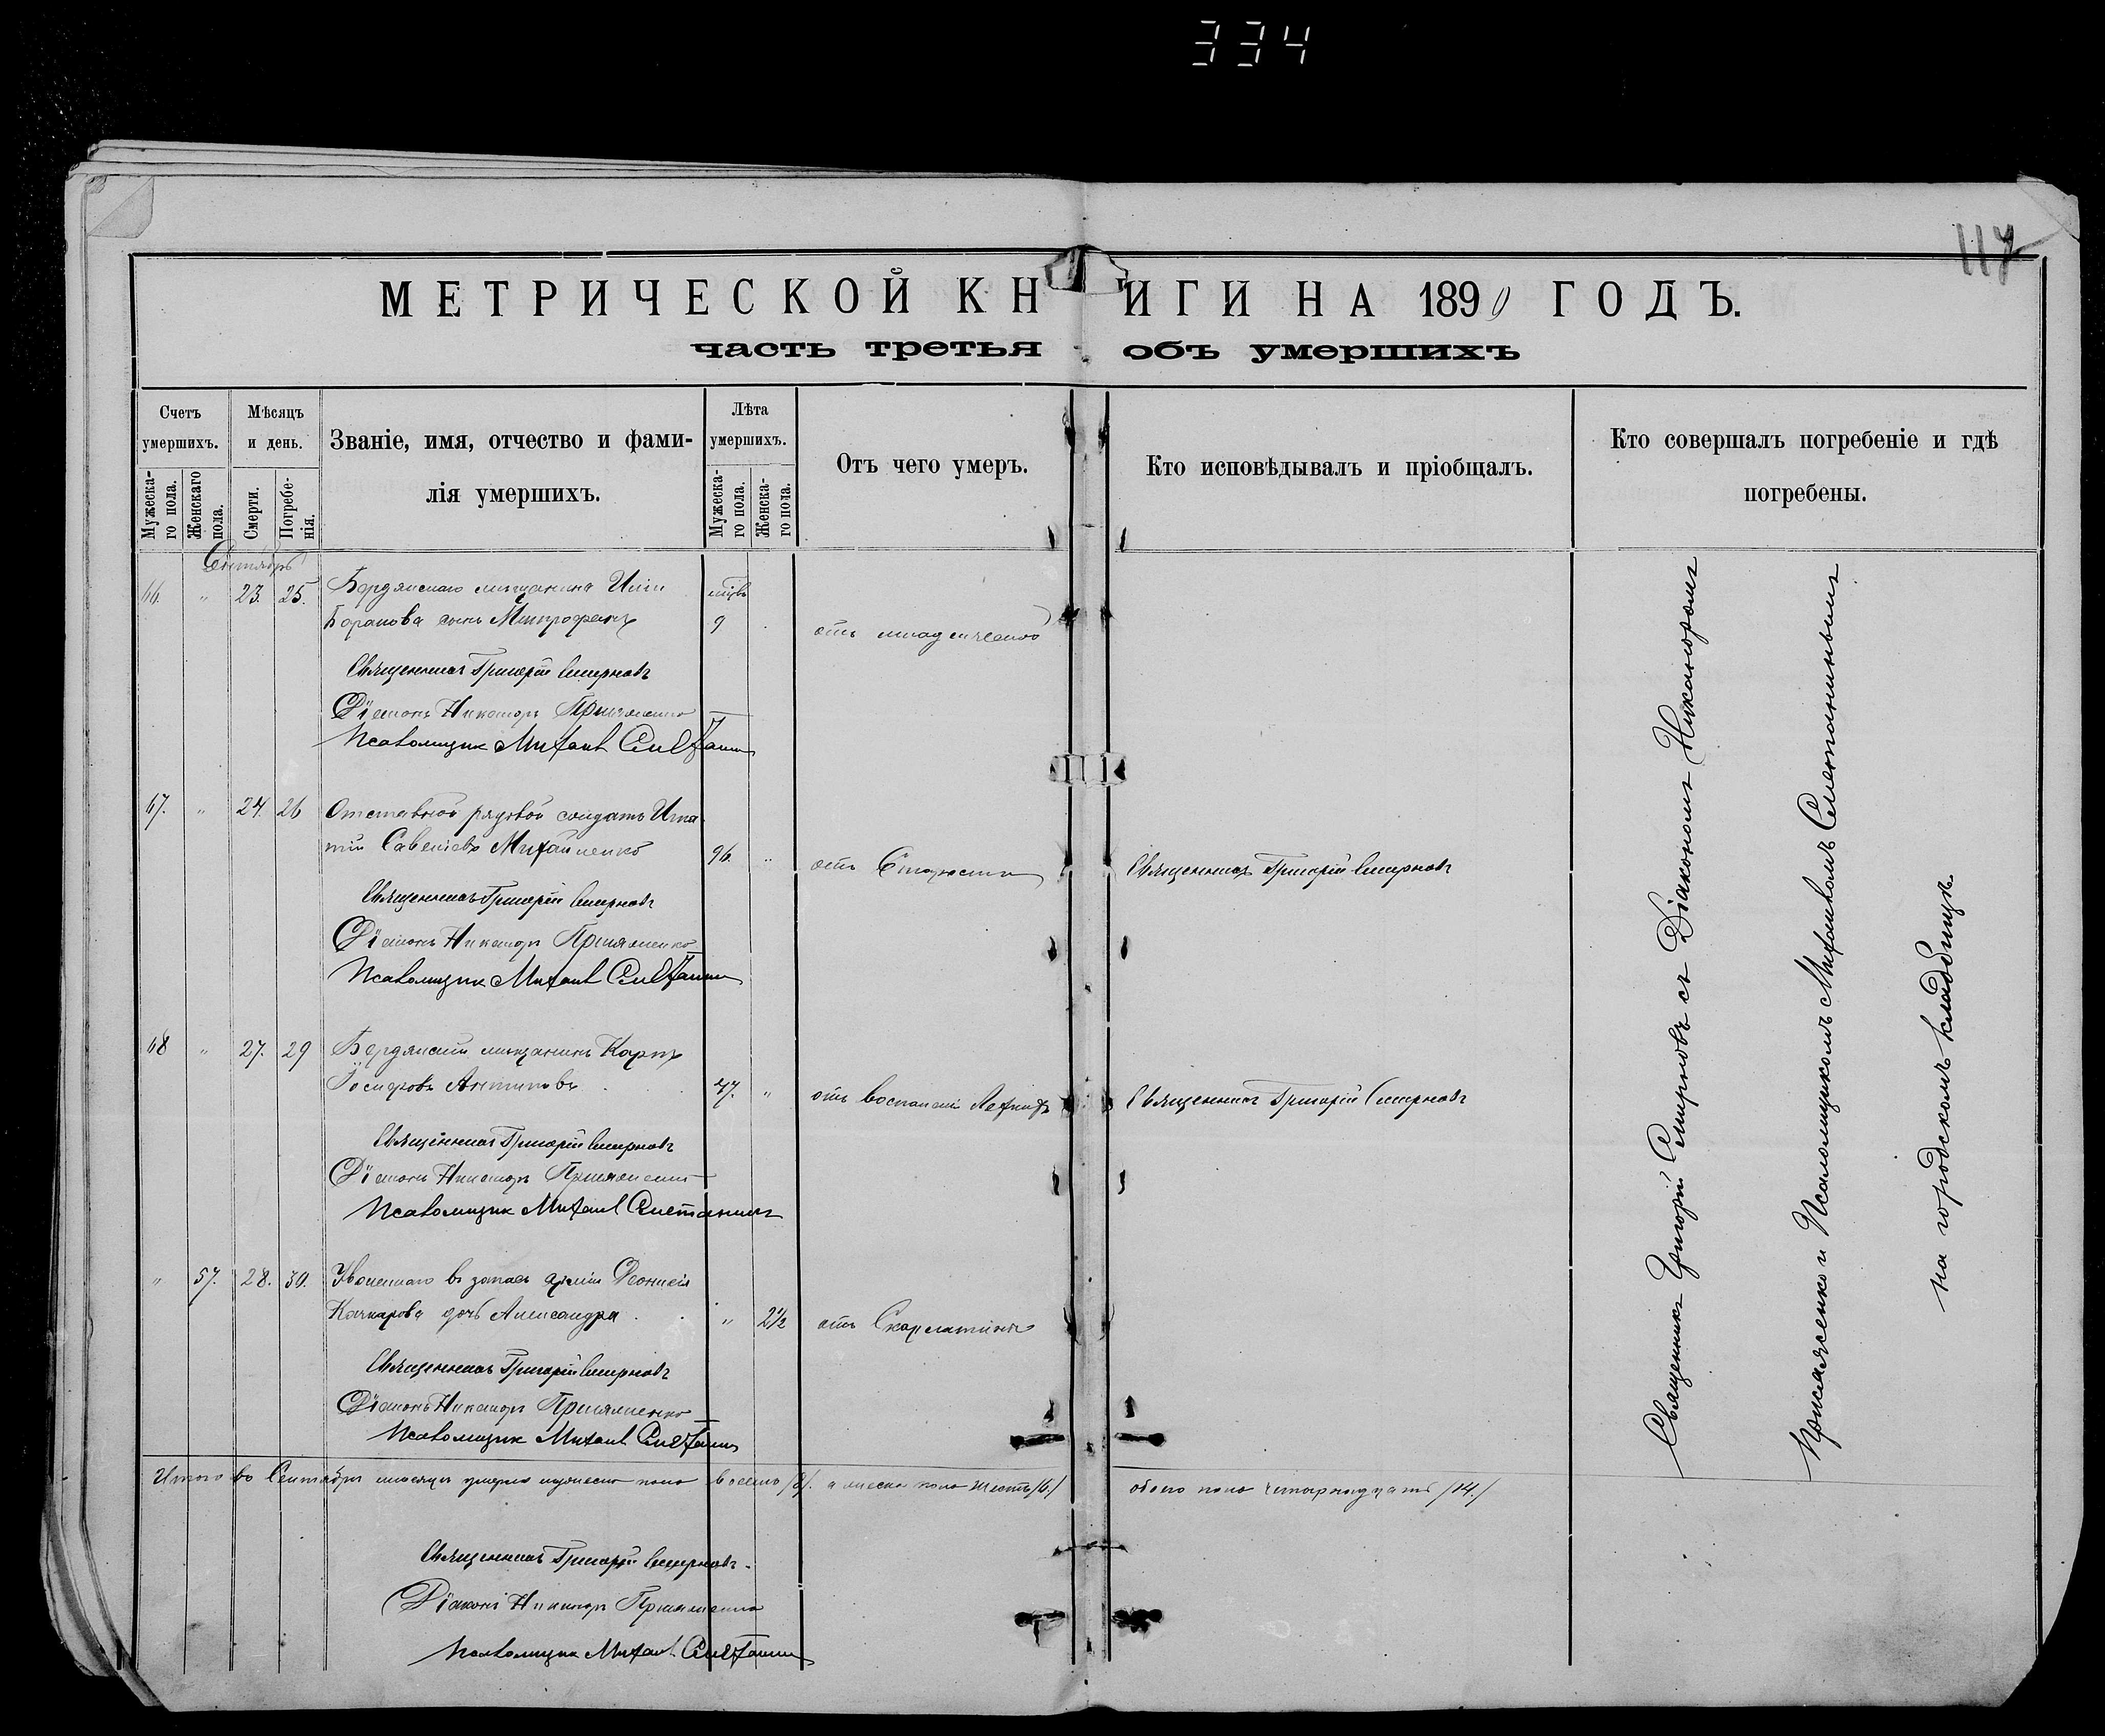 334
117
МЕТРИЧЕСКОЙ КНИГИ НА 1890 ГОДЪ.
часть третья объ умершихъ
Счетъ умершихъ.
Мужеска-го пола.
Женскаго пола.
Мѣсяцъ и день.
Смерти.
Погребе-нія.
Званіе, имя, отчество и фами-
лія умершихъ.
Лѣта умершихъ.
Мужеска-го пола.
Женска-го пола.
Отъ чего умеръ.
Кто исповѣдывалъ и пріобщалъ.
Кто совершалъ погребеніе и гдѣ
погребены.
Сентябрь
66. " 23. 25. Бердянскаго мѣщанина Иліи
Баранова сынъ Митрофанъ 9 отъ младенческой
Священникъ Григорій Смирновъ
Діаконъ Никаноръ
Псаломщикъ Михаилъ
67. " 24. 26 Отставной рядовой солдатъ Игна-
тій Савеліевъ Михайленко 96. " отъ Старости Священникъ Григорій Смирновъ
Священникъ Григорій Смирновъ
Діаконъ Никаноръ
Псаломщикъ Михаилъ
68 " 27. 29 Бердянскій мѣщанинъ Карпъ
Антиповъ 47. " отъ воспаленія Легкихъ Священникъ Григорій Смирновъ
Священникъ Григорій Смирновъ
Діаконъ Никаноръ
Псаломщикъ Михаилъ
" 57. 28. 30. Уволеннаго въ запасъ арміи Діонисія
дочь Александра " 2½ отъ Скарлатины
Священникъ Григорій Смирновъ
Діаконъ Никаноръ
Псаломщикъ Михаилъ
Итого въ Сентябрѣ мѣсяцѣ умерло мужеска пола восемь /8/. а женска пола шесть /6./ обоего пола четырнадцать /14./
Священникъ Григорій Смирновъ
Діаконъ Никаноръ
Псаломщикъ Михаилъ
Священникъ Григорій Смирновъ съ Діакономъ Никаноромъ
и Псаломщикомъ Михаиломъ
на городскомъ кладбищѣ.